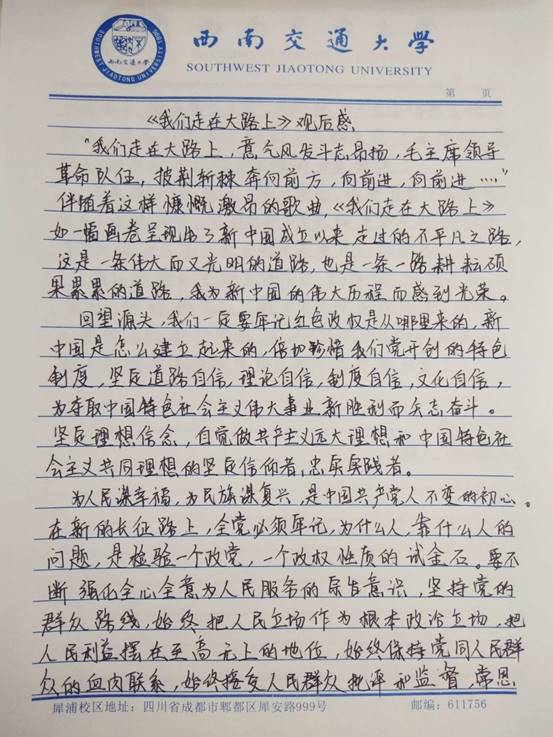 西南交通大学
SOUTHWEST JIAOTONG UNIVERSITY
第 页
《我们走在大路上》观后感
"我们走在大路上,意气风发斗志昂扬,毛主席领导
革命队伍,披荆斩棘奔向前方,向前进,向前进……"
伴随着这样慷慨激昂的歌曲,《我们走在大路上》
如一幅画卷呈现出了新中国成立以来走过的不平凡之路,
这是一条伟大而又光明的道路,也是一条一路耕耘硕
果累累的道路,我为新中国的伟大历程而感到光荣。
回望源头,我们一定要牢记红色政权是从哪里来的,新
中国是怎么建立起来的,倍加珍惜我们党开创的特色
制度,坚定道路自信,理论自信,制度自信,文化自信,
为夺取中国特色社会主义伟大事业新胜利而矢志奋斗。
坚定理想信念,自觉做共产主义远大理想和中国特色社
会主义共同理想的坚定信仰者,忠实实践者。
为人民谋幸福,为民族谋复兴,是中国共产党人不变的初心。
在新的长征路上,全党必须牢记,为什么人,靠什么人的
问题,是检验一个政党,一个政权性质的试金石。要不
断强化全心全意为人民服务的宗旨意识,坚持党的
群众路线,始终把人民立场作为根本政治立场,把
人民利益摆在至高无上的地位,始终保持党同人民群
众的血肉联系,始终接受人民群众批评和监督,常思
犀浦校区地址:四川省成都市郫都区犀安路999号 邮编:611756